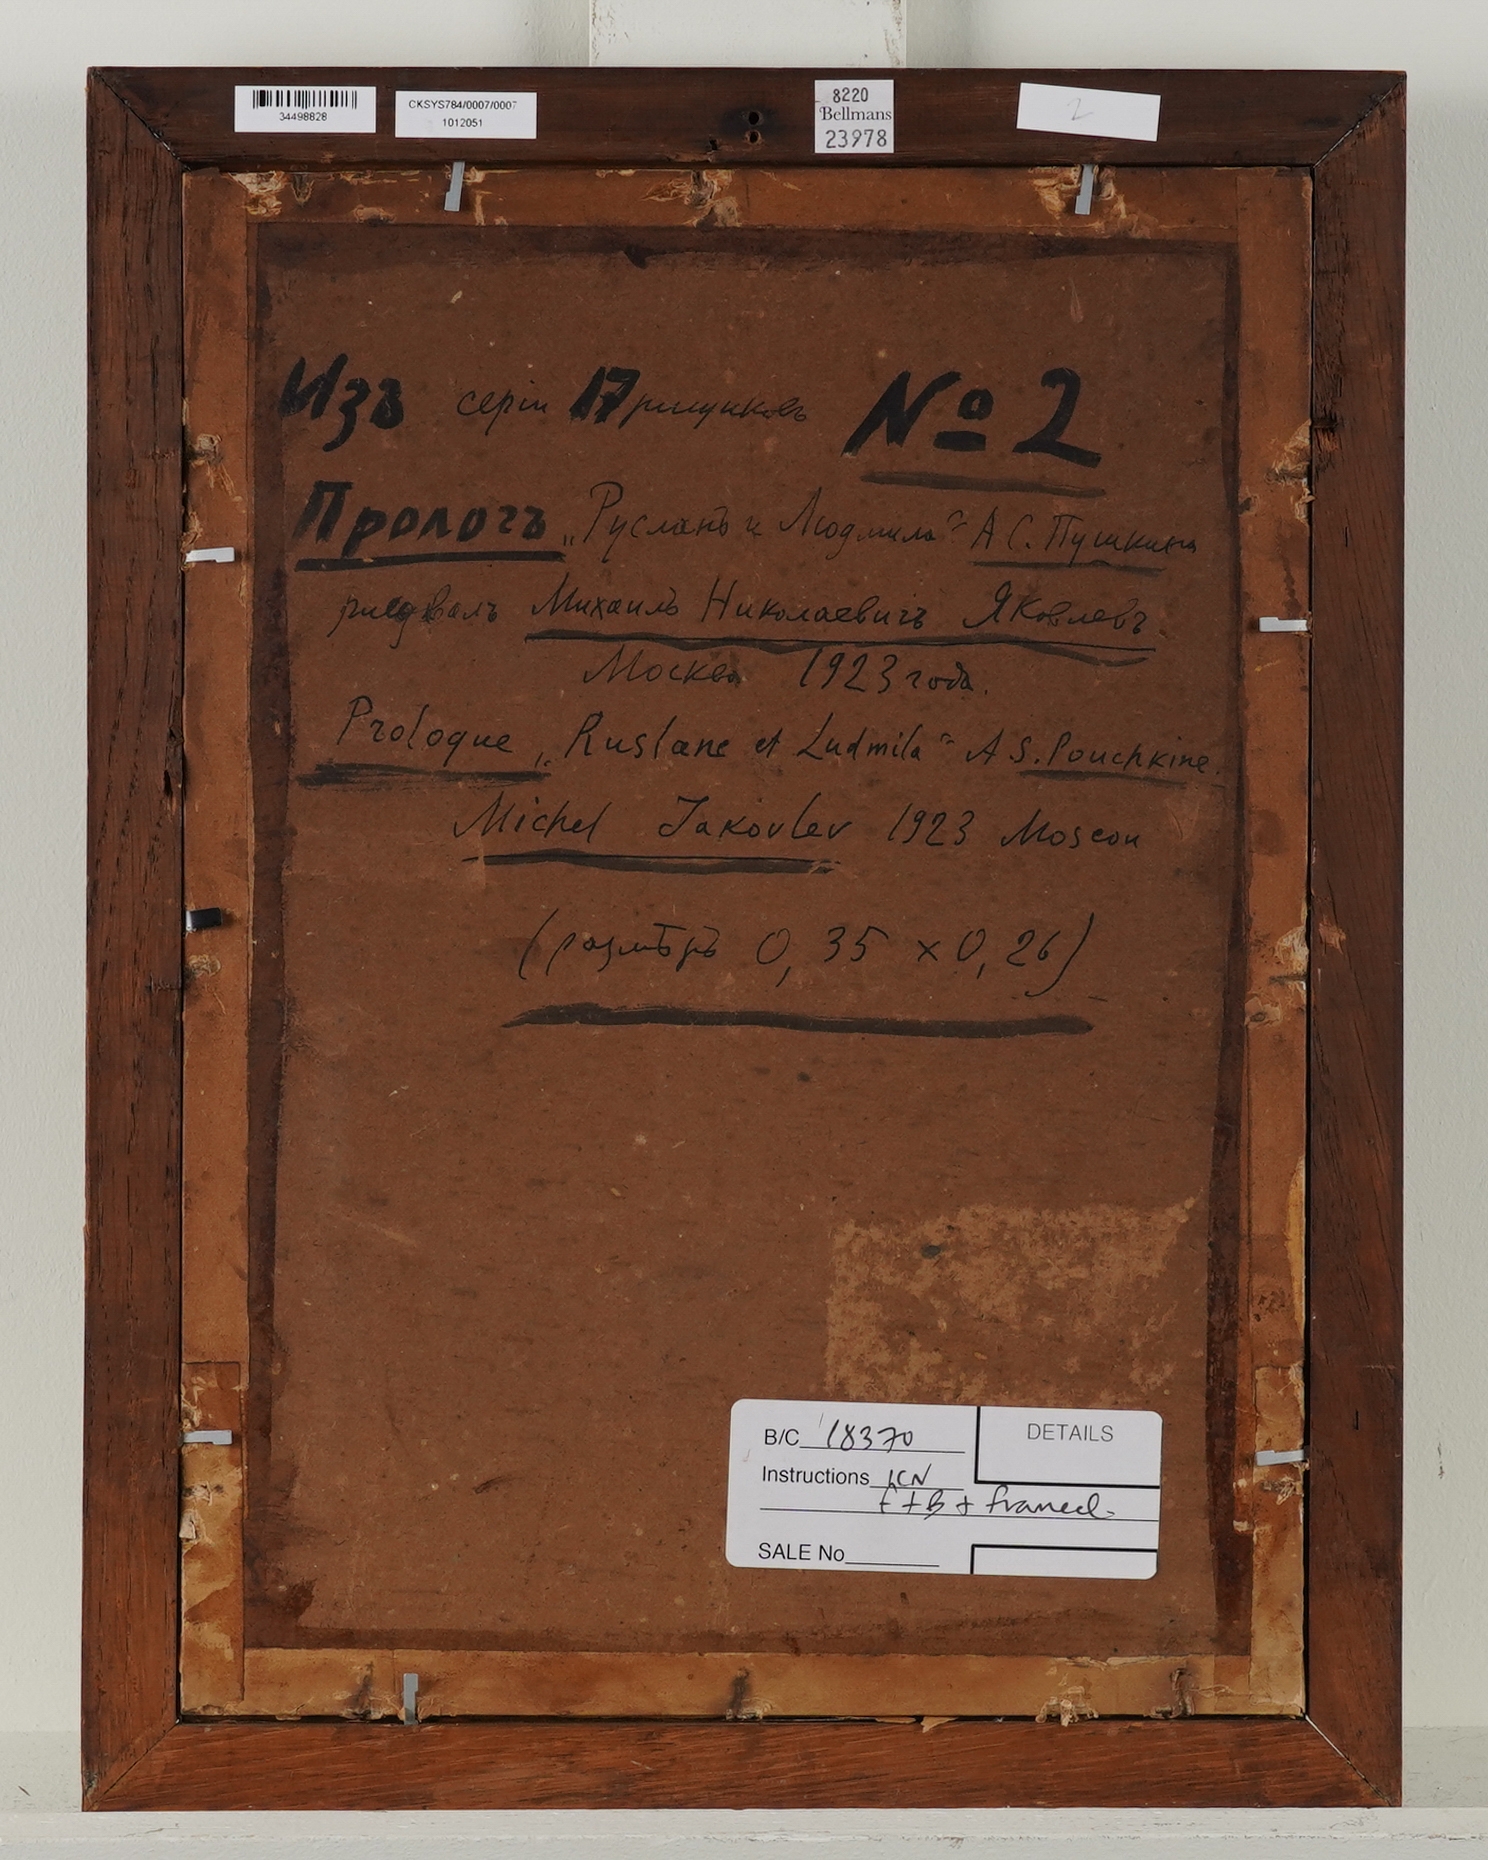 34498828
CKSYS784/0007/0007
1012051
8220
Bellmans
23978
2
Изъ серiи 17 рисунковъ № 2
Прологъ „Русланъ и Людмила“ А С. Пушкина
рисовалъ Михаилъ Николаевичъ Яковлевъ
Москва 1923 года.
Prologue „Ruslane et Ludmila“ A S. Pouchkine.
Michel Jakovlev 1923 Moscou
(размѣръ 0,35 x 0,26)
B/C 18370
DETAILS
Instructions LCN
F+B + framed
SALE No